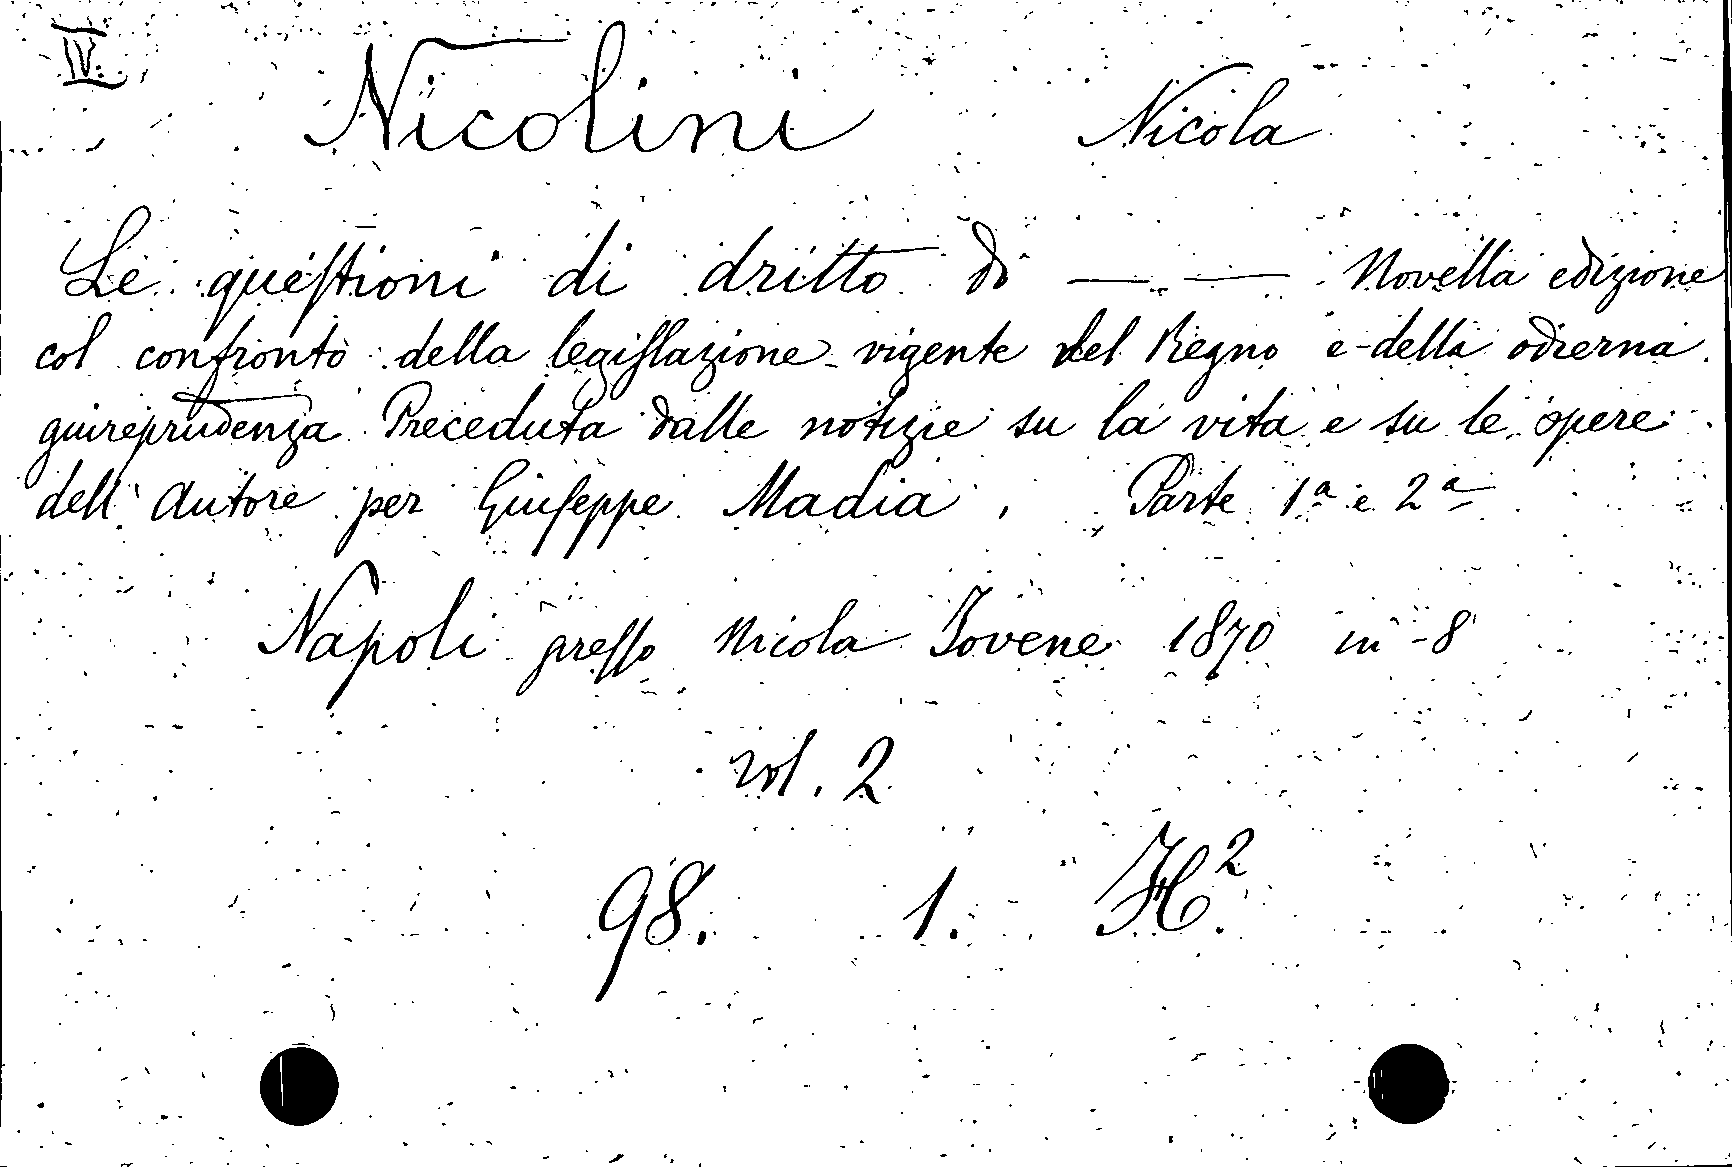 IV.
Nicolini Nicola
Le questioni di dritto di — — Novella edizione
col confronto della legislazione vigente del Regno e della odierna
giureprudenza Preceduta dalle notizie su la vita e su le opere
dell' Autore per Giuseppe Madia, Parte 1ª e 2ª
Napoli presso Nicola Jovene 1870 in-8
vol. 2
98. 1. H².